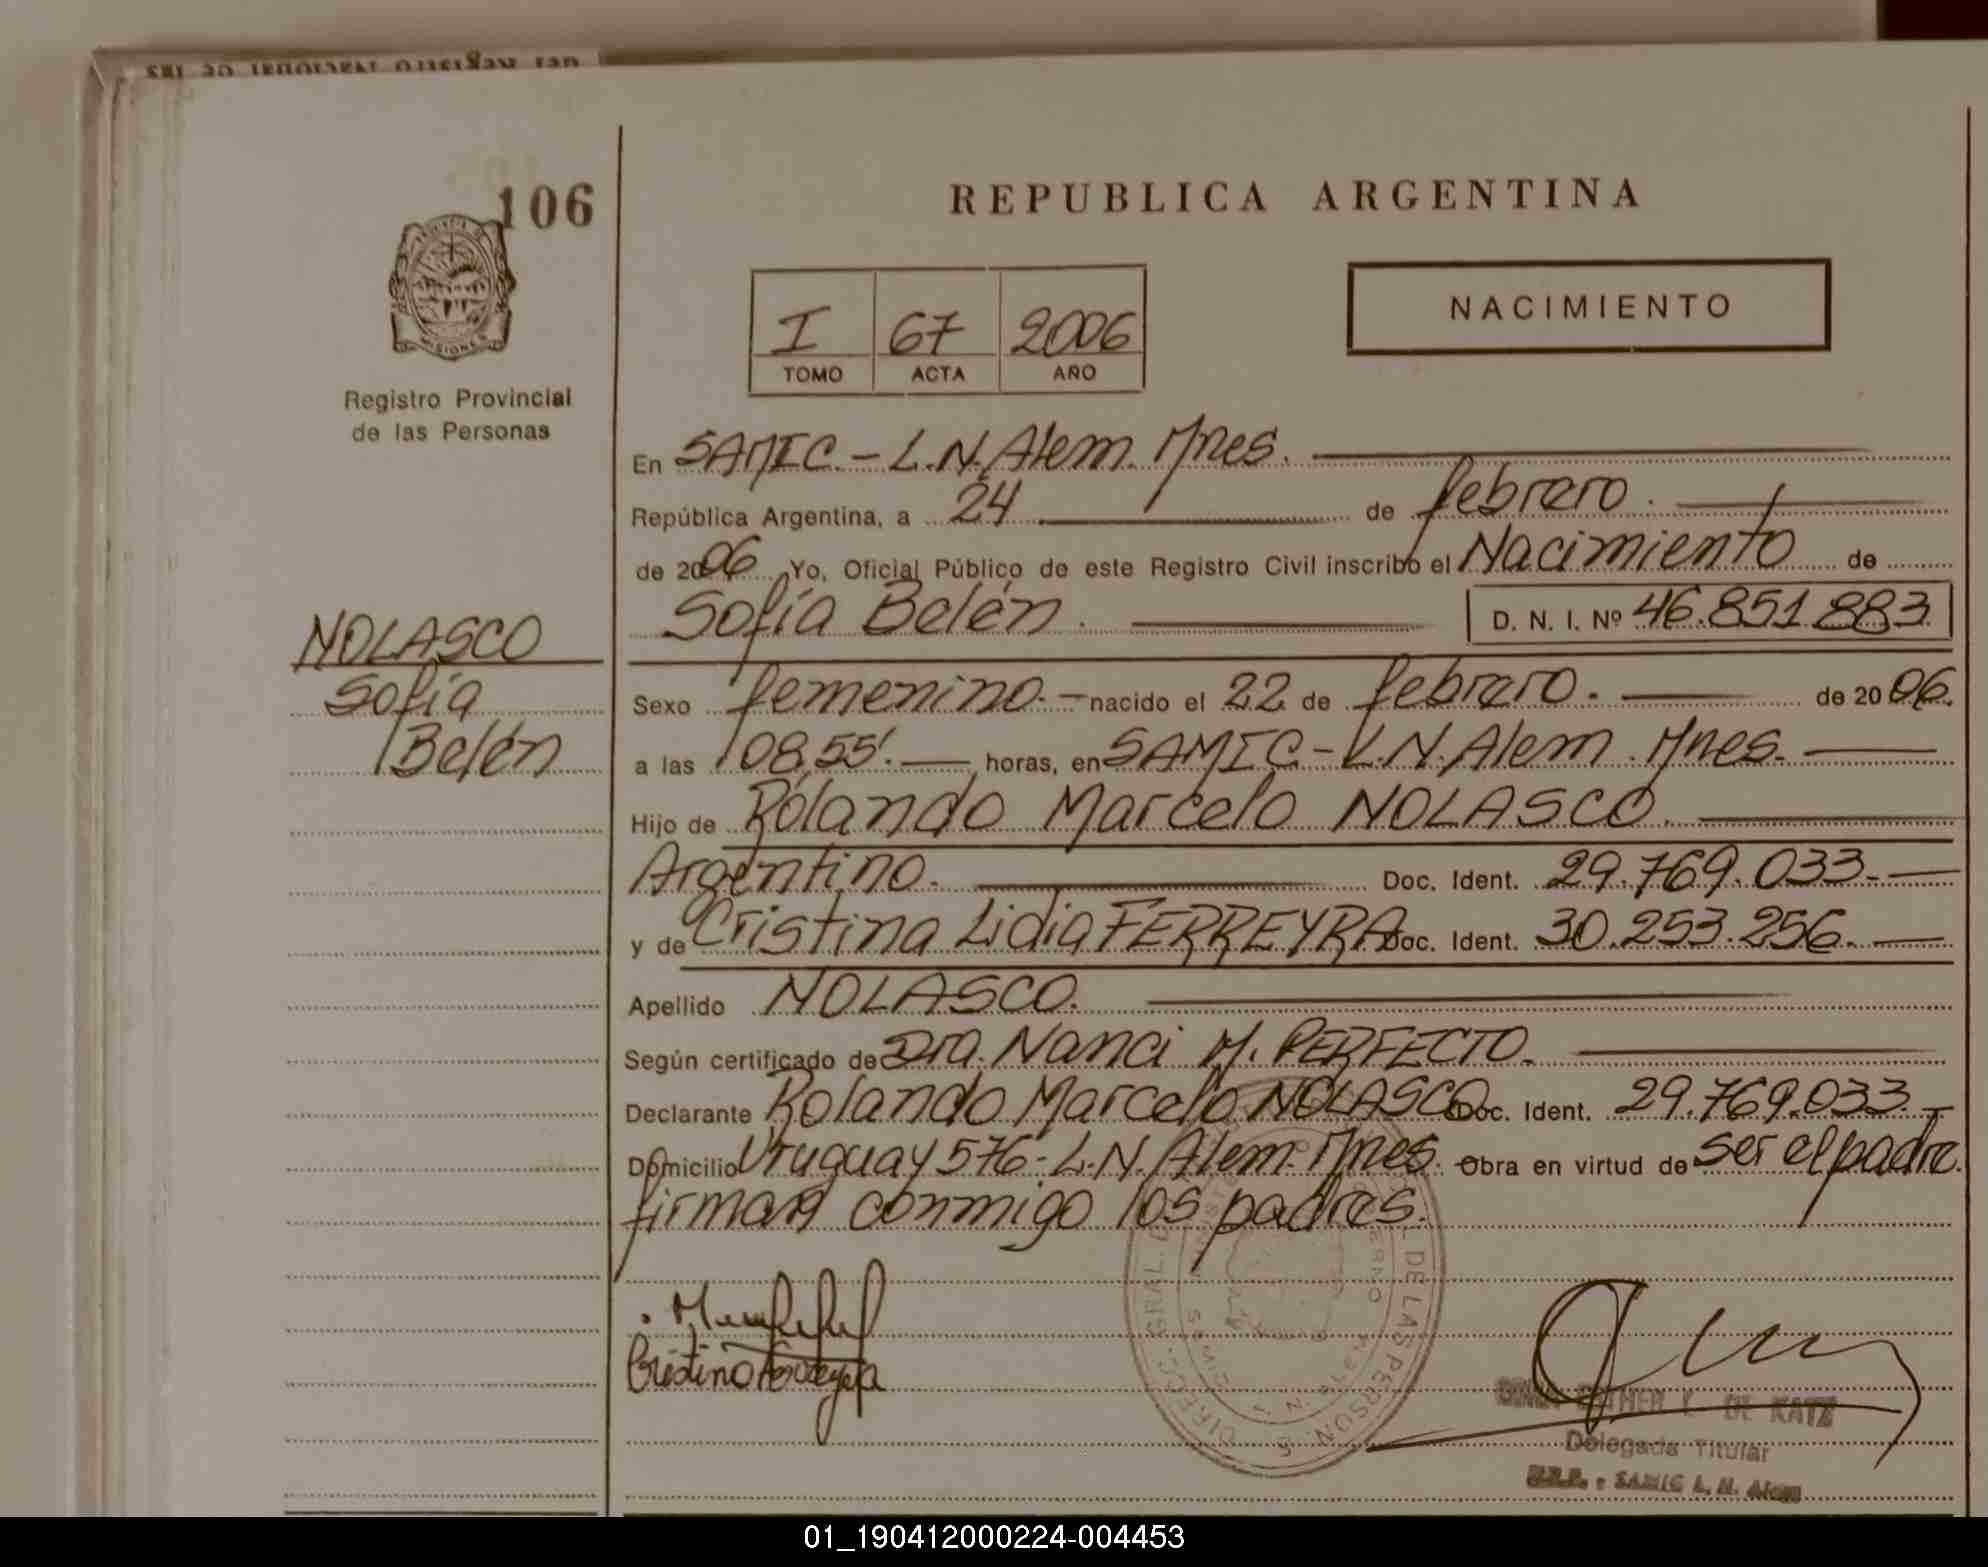 106
MISIONES
Registro Provincial
de las Personas
NOLASCO
Sofía
Belén
REPUBLICA ARGENTINA
I 67 2006
TOMO ACTA AÑO
NACIMIENTO
En SAMIC.- L.N. Alem. Mnes.
República Argentina, a 24 de febrero.
de 2006 Yo, Oficial Público de este Registro Civil inscribo el Nacimiento de
Sofía Belén. D. N. I. Nº 46.851.883
Sexo femenino.- nacido el 22 de febrero. de 2006.
a las 08,55'. horas, en SAMIC- L.N. Alem. Mnes.
Hijo de Rolando Marcelo NOLASCO.
Argentino. Doc. Ident. 29.769.033.-
y de Cristina Lidia FERREYRA Doc. Ident. 30.253.256.-
Apellido NOLASCO.
Según certificado de Dra. Nanci M. PERFECTO.
Declarante Rolando Marcelo NOLASCO Doc. Ident. 29.769.033.-
Domicilio Uruguay 576- L.N. Alem. Mnes. Obra en virtud de ser el padre.
firman conmigo los padres.
Cristina Ferreyra
ESTHER K. DE KATZ
Delegada Titular
SAMIC L. N. Alem
01_190412000224-004453